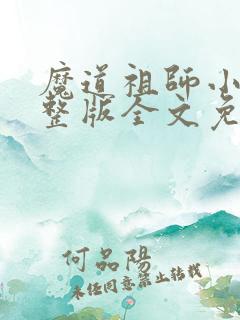 魔道祖師小
整版全文免
何品陽
未经同意禁止转载